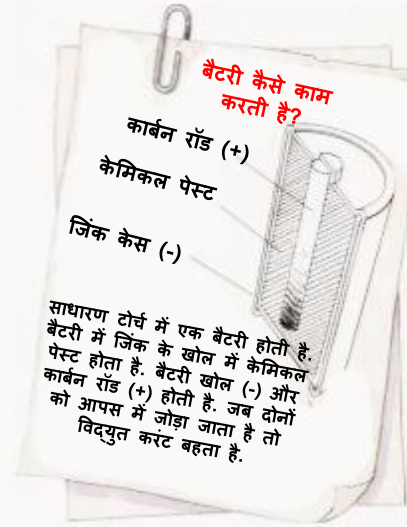 बैटरी कैसे काम
करती है?
कार्बन रॉड (+)
केमिकल पेस्ट
जिंक केस (-)
साधारण टोर्च में एक बैटरी होती है.
बैटरी में जिंक के खोल में केमिकल
पेस्ट होता है. बैटरी खोल (-) और
कार्बन रॉड (+) होती है. जब दोनों
को आपस में जोड़ा जाता है तो
विद्युत करंट बहता है.